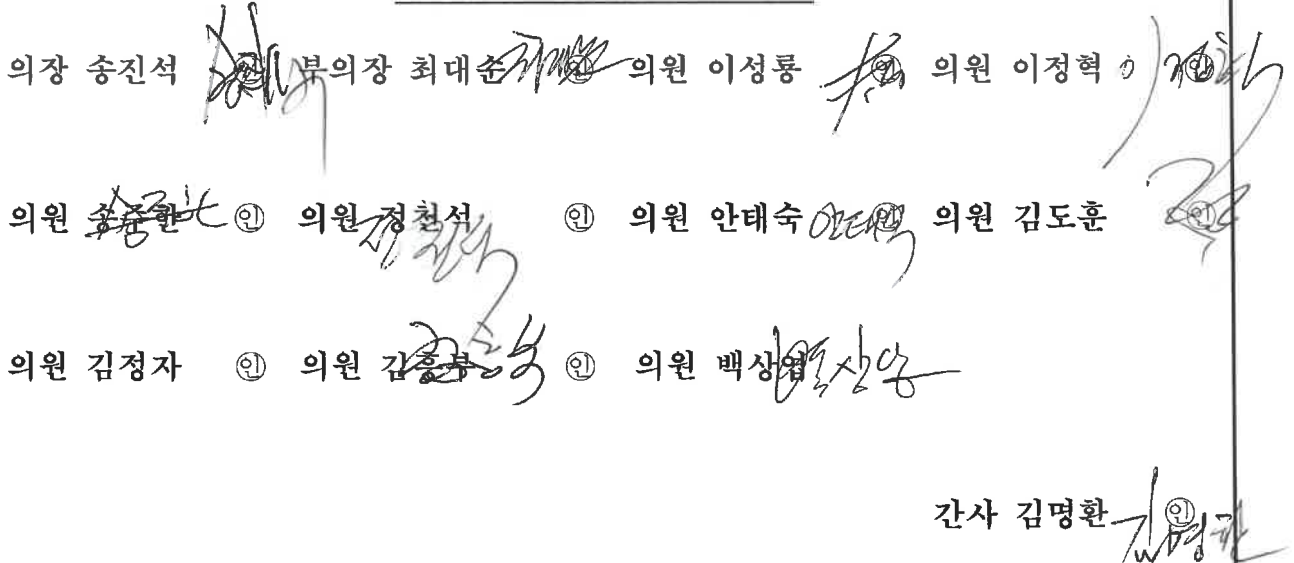 의장 송진석 ㊞ 부의장 최대순 ㊞ 의원 이성룡 ㊞ 의원 이정혁 ㊞
의원 송준한 ㊞ 의원 정철석 ㊞ 의원 안태숙 안태숙 ㊞ 의원 김도훈 ㊞
의원 김정자 ㊞ 의원 김흥부 ㊞ 의원 백상엽
간사 김명환 ㊞ 김명환